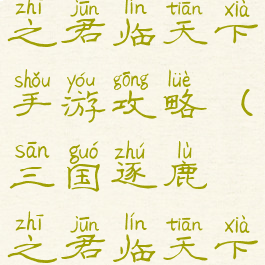 zhī jūn lín tiān xià
之君临天下
shǒu yóu gōng lüè
手游攻略（
sān guó zhú lù
三国逐鹿
zhī jūn lín tiān xià
之君临天下